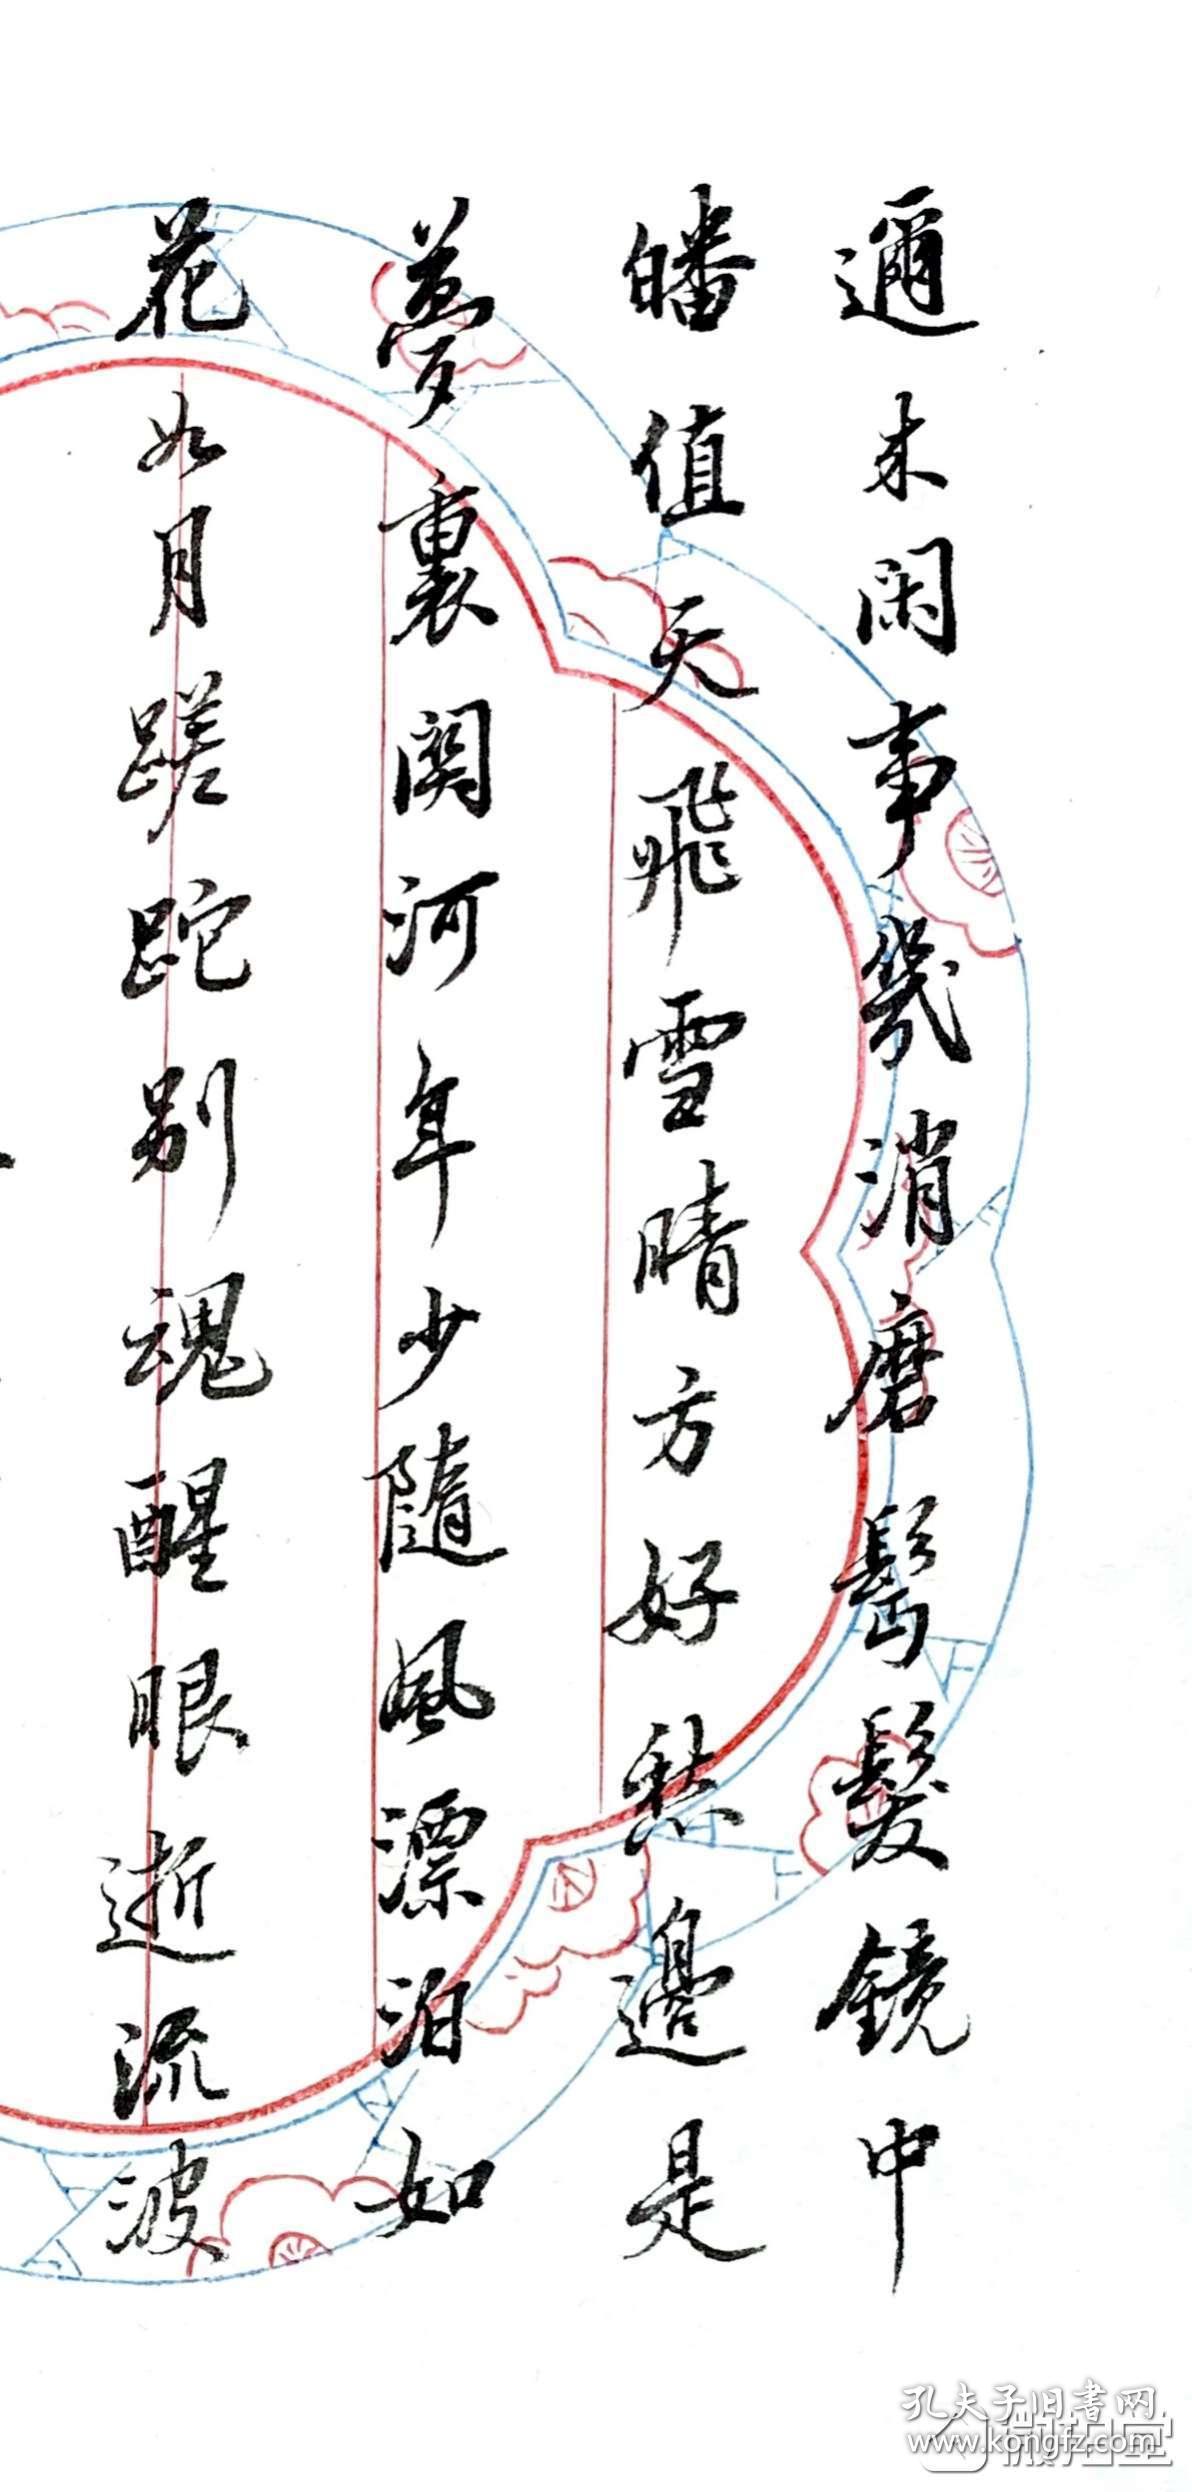 邇来閑事幾消磨鬢髮鏡中
皤值天飛雪晴方好愁邊是
夢裏関河年少隨風漂泊如
花如月蹉跎别魂醒眼逝流波
孔夫子旧書网
www.kongfz.com
微拍堂